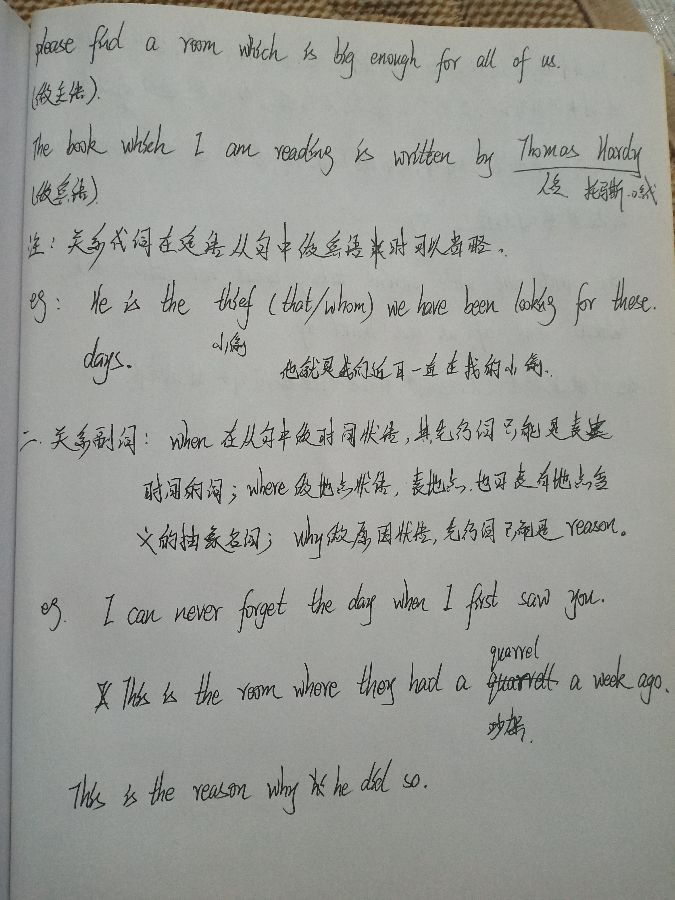 please find a room which is big enough for all of us.
(做主语).
The book which I am reading is written by Thomas Hardy
(做宾语) 人名 托马斯·哈代
注：关系代词在定语从句中做宾语时可以省略。
eg: He is the thief (that/whom) we have been looking for these.
小偷
days. 他就是我们近日一直在找的小偷.
二. 关系副词：when 在从句中做时间状语，其先行词只能是表
时间的词；where 做地点状语，表地点.也可表有地点含
义的抽象名词；why 做原因状语，先行词只能是 reason。
eg. I can never forget the day when I first saw you.
quarrel
This is the room where they had a quarrell a week ago.
吵架.
This is the reason why he did so.